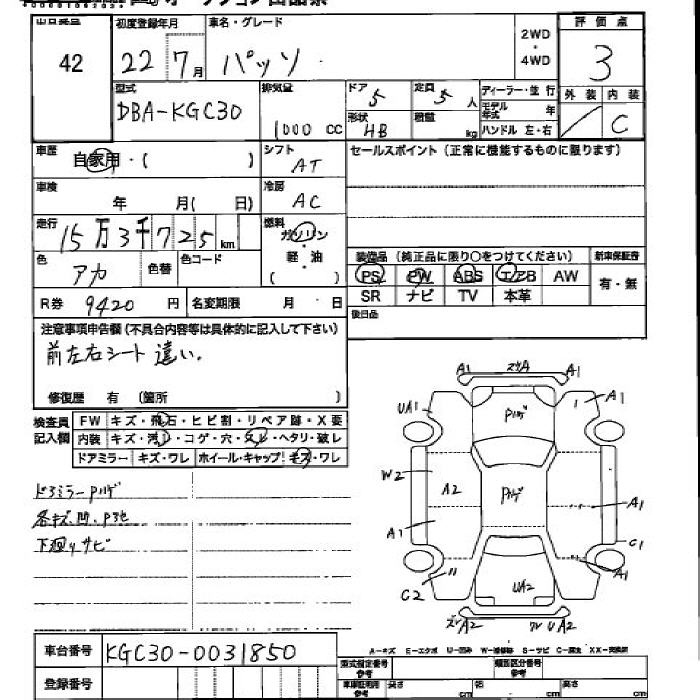 出品番号 初度登録年月 車名・グレード 2WD・4WD 評価点
42 22年 7月 パッソ 3
型式 排気量 ドア 5 定員 5人 ディーラー・並行 外装 内装
DBA-KGC30 1000 cc 形状 HB 積載 kg モデル年式 年 C
ハンドル 左・右
車歴 自家用・( ) シフト AT セールスポイント(正常に機能するものに限ります)
車検 年 月( 日) 冷房 AC
走行 15万3千725km 燃料 ガソリン・軽・油 ( )
色 アカ 色替 色コード 装備品(純正品に限り○をつけてください) 新車保証書
PS PW ABS エアB AW 有・無
R券 9420円 名変期限 月・日 SR ナビ TV 本革
注意事項申告欄(不具合内容等は具体的に記入して下さい) 後日品
前左右シート 違い.
修復歴 有 (箇所 )
検査員記入欄 FW キズ・飛石・ヒビ割・リペア跡・X要
内装 キズ・汚れ・コゲ・穴・スレ・ヘタリ・破レ
ドアミラー キズ・ワレ ホイール・キャップ キズ・ワレ
ドアミラーPハゲ
各キズ.凹.P他
下廻りサビ
A1 スリA A1
UA1 Pハゲ 1 A1
W2 A2 Pハゲ A1
A1 C1
C2 UA2 A1
A2 UA2
A-キズ E-エクボ U-凹み W-補修跡 S-サビ C-腐食 XX-交換済
車台番号 KGC30-0031850
登録番号
型式指定番号 参考 類別区分番号 参考
車庫証明用 参考 長さ cm 幅 cm 高さ cm